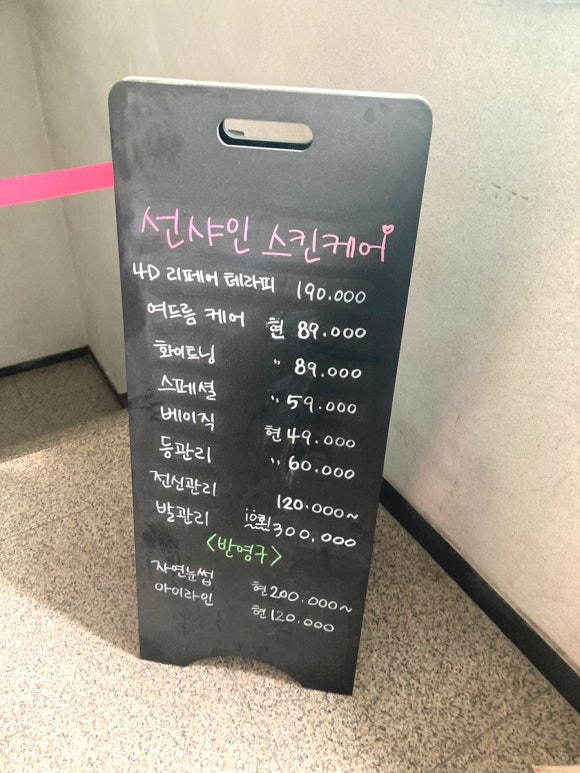 선샤인 스킨케어
4D 리페어 테라피 190.000
여드름 케어 현 89.000
화이트닝 " 89.000
스페셜 " 59.000
베이직 현 49.000
등관리 " 60.000
전신관리 120.000~
발관리 10회 300,000
<반영구>
자연눈썹 현 200.000~
아이라인 현 120.000